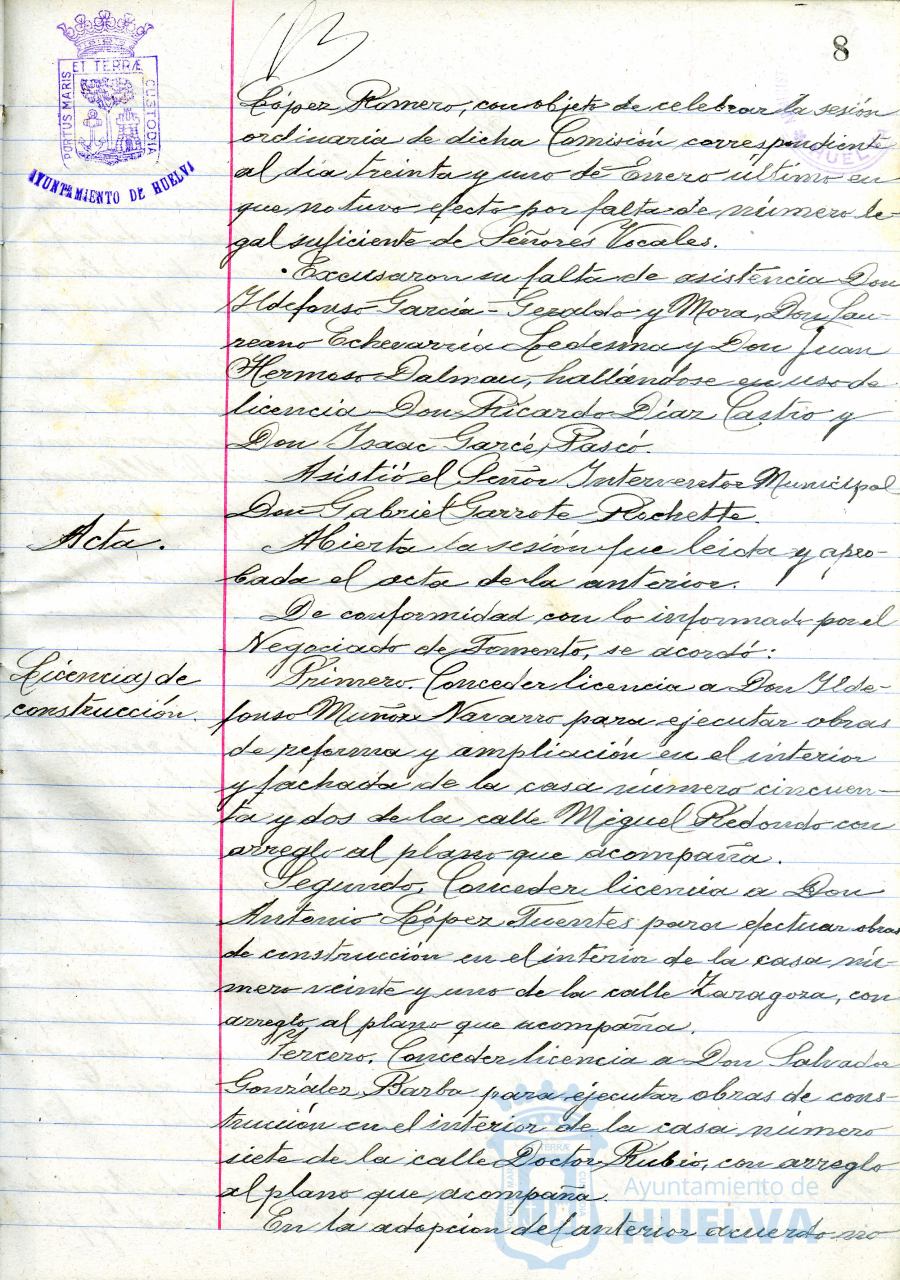 8
PORTUS MARIS ET TERRÆ CUSTODIA
AYUNTAMIENTO DE HUELVA
López Romero, con objeto de celebrar la sesión
ordinaria de dicha Comisión correspondiente
al día treinta y uno de Enero último en
que no tuvo efecto por falta de número le-
gal suficiente de Señores Vocales.
Excusaron su falta de asistencia Don
Ildefonso García-Geraldo y Mora, Don Lau-
reano Echevarría Ledesma y Don Juan
Hermoso Dalmau, hallándose en uso de
licencia Don Ricardo Díaz Castro y
Don Isaac Garcé Pascó.
Asistió el Señor Interventor Municipal
Don Gabriel Garrote Rochette.
Acta.
Abierta la sesión fue leida y apro-
bada el acta de la anterior.
De conformidad con lo informado por el
Negociado de Fomento, se acordó:
Licencias de
construcción.
Primero. Conceder licencia a Don Ilde-
fonso Muñoz Navarro para ejecutar obras
de reforma y ampliación en el interior
y fachada de la casa número cincuen-
ta y dos de la calle Miguel Redondo con
arreglo al plano que acompaña.
Segundo. Conceder licencia a Don
Antonio López Fuentes para efectuar obras
de construcción en el interior de la casa nú-
mero veinte y uno de la calle Zaragoza, con
arreglo al plano que acompaña.
Tercero. Conceder licencia a Don Salvador
González Barba para ejecutar obras de cons-
trucción en el interior de la casa número
siete de la calle Doctor Rubio, con arreglo
al plano que acompaña.
En la adopción del anterior acuerdo no
Ayuntamiento de
HUELVA